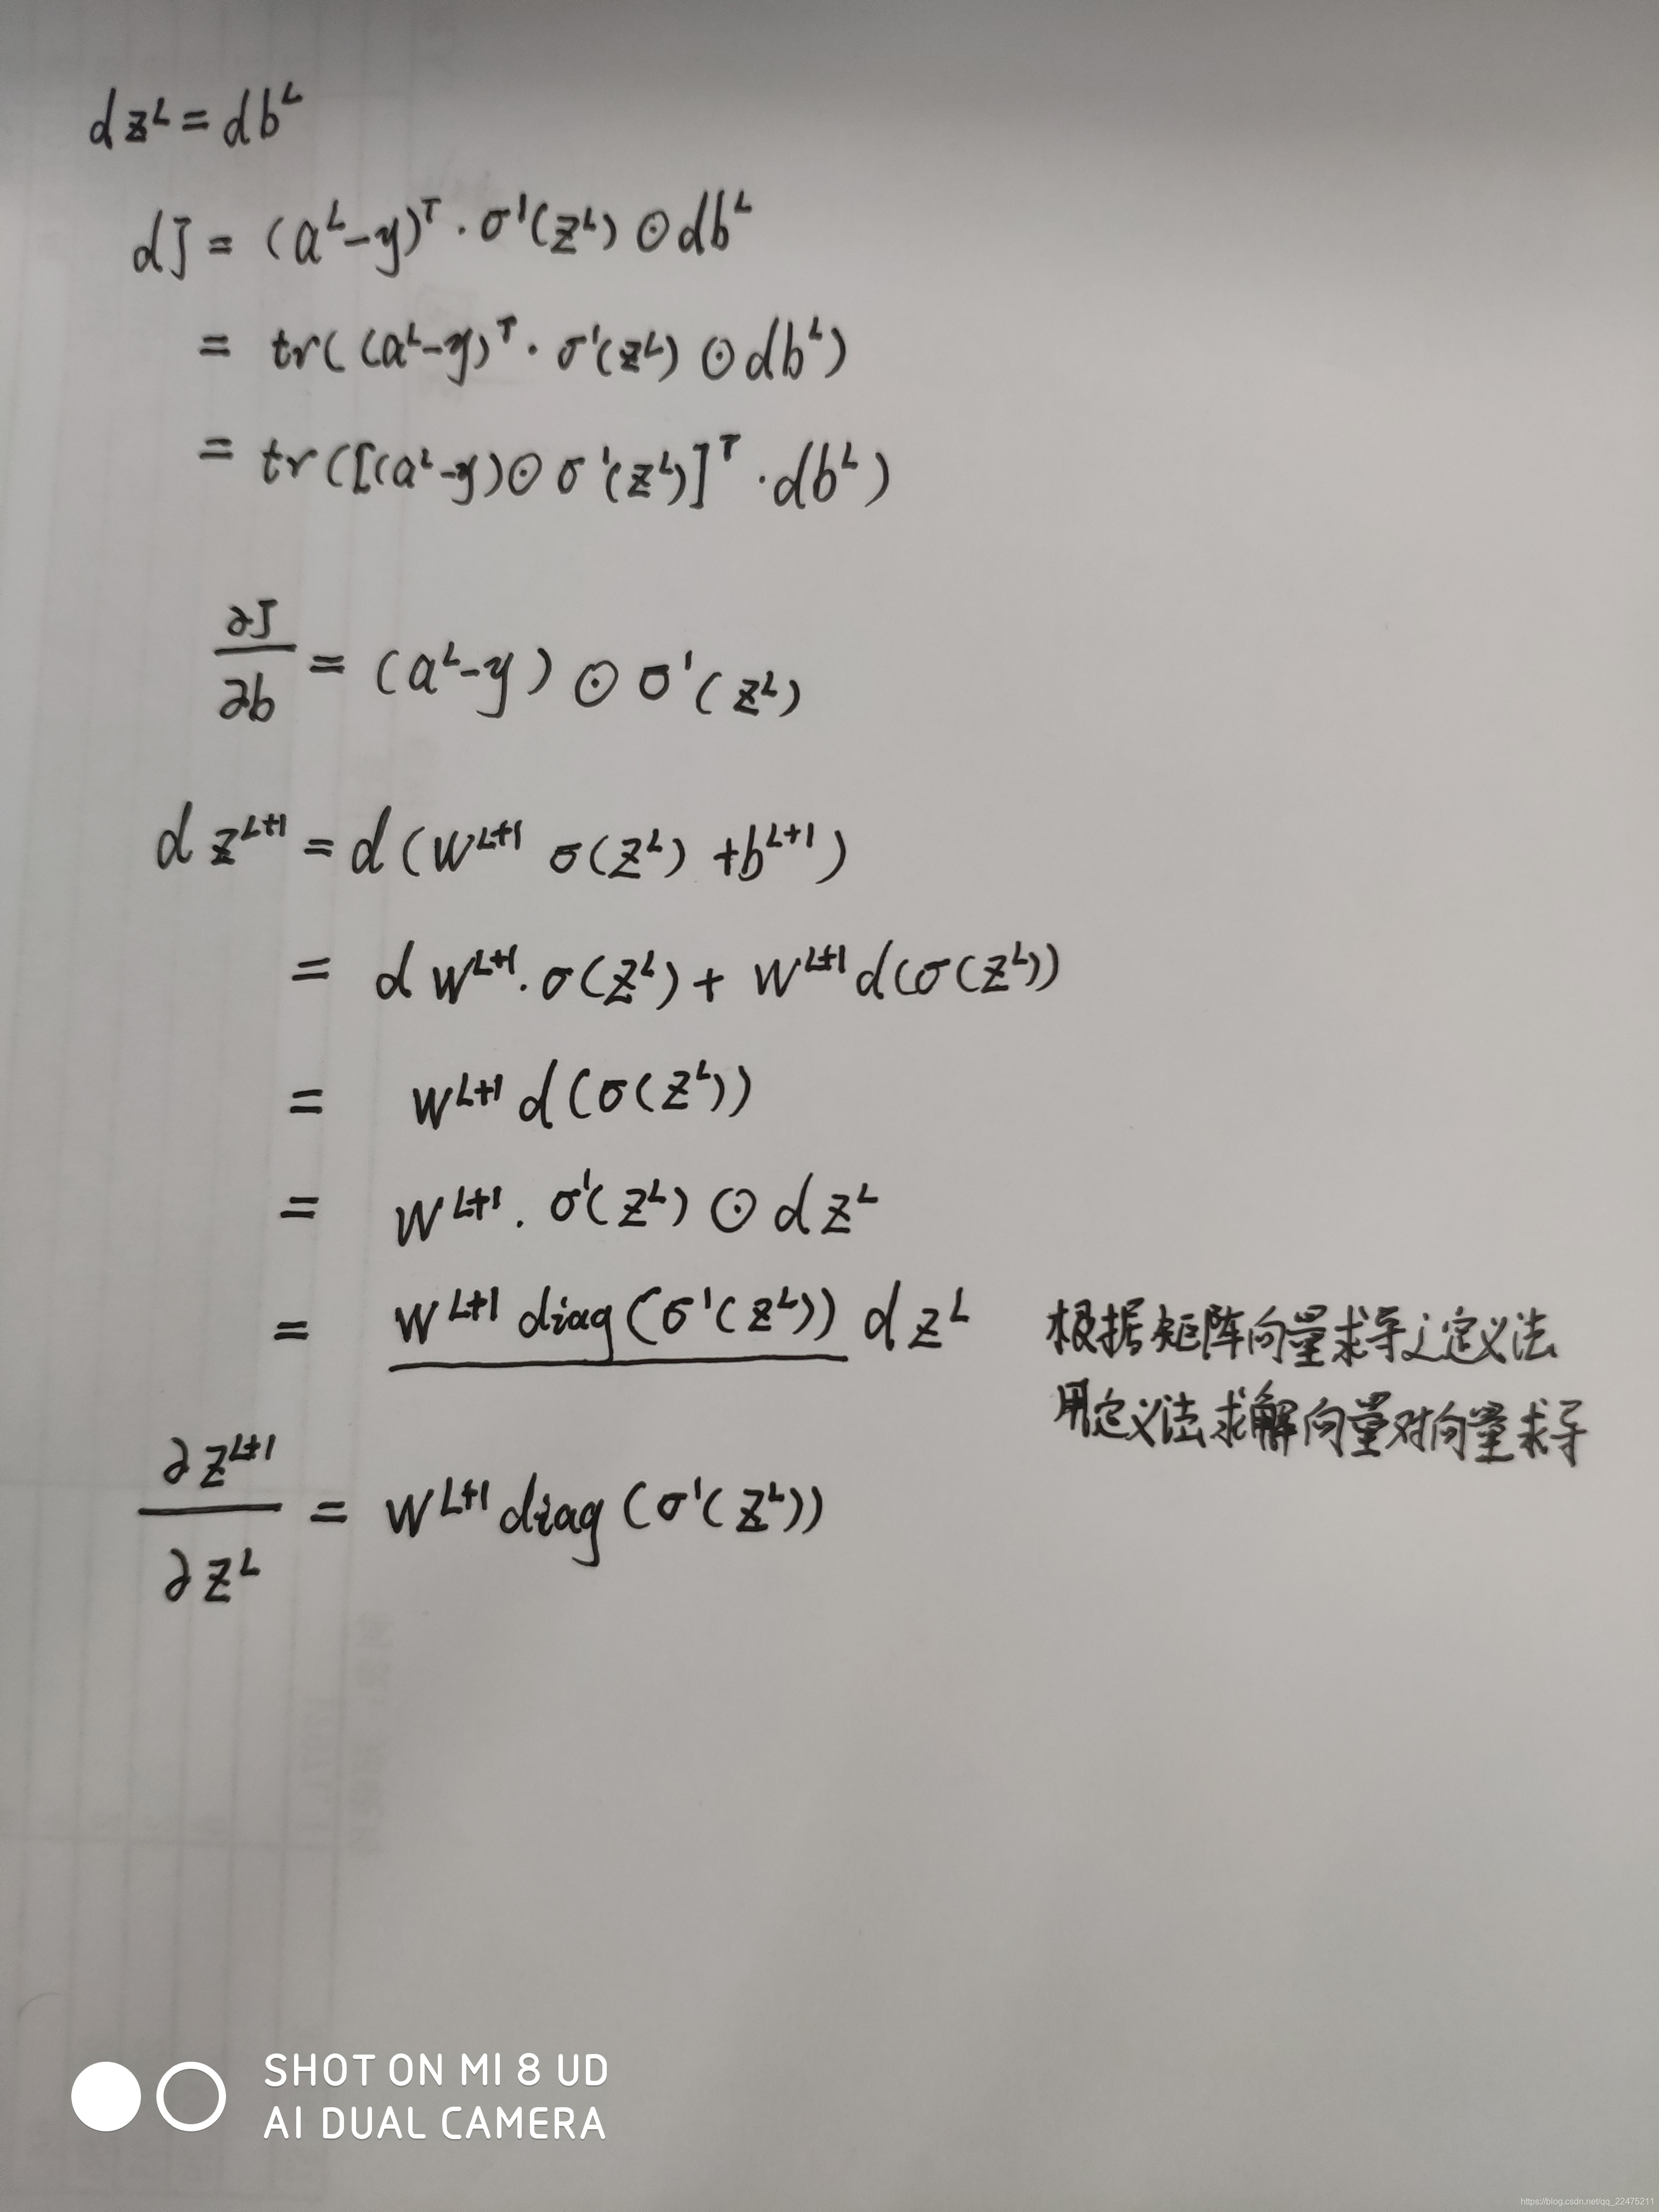 dz^L = db^L
dJ = (a^L-y)^T · σ'(z^L) ⊙ db^L
= tr((a^L-y)^T · σ'(z^L) ⊙ db^L)
= tr([(a^L-y) ⊙ σ'(z^L)]^T · db^L)
∂J/∂b = (a^L-y) ⊙ σ'(z^L)
d z^{L+1} = d(W^{L+1} σ(z^L) + b^{L+1})
= d W^{L+1} · σ(z^L) + W^{L+1} d(σ(z^L))
= W^{L+1} d(σ(z^L))
= W^{L+1} · σ'(z^L) ⊙ d z^L
= W^{L+1} diag(σ'(z^L)) d z^L 根据矩阵向量求导之定义法
用定义法求解向量对向量求导
∂z^{L+1}/∂z^L = W^{L+1} diag(σ'(z^L))
SHOT ON MI 8 UD
AI DUAL CAMERA
https://blog.csdn.net/qq_22475211